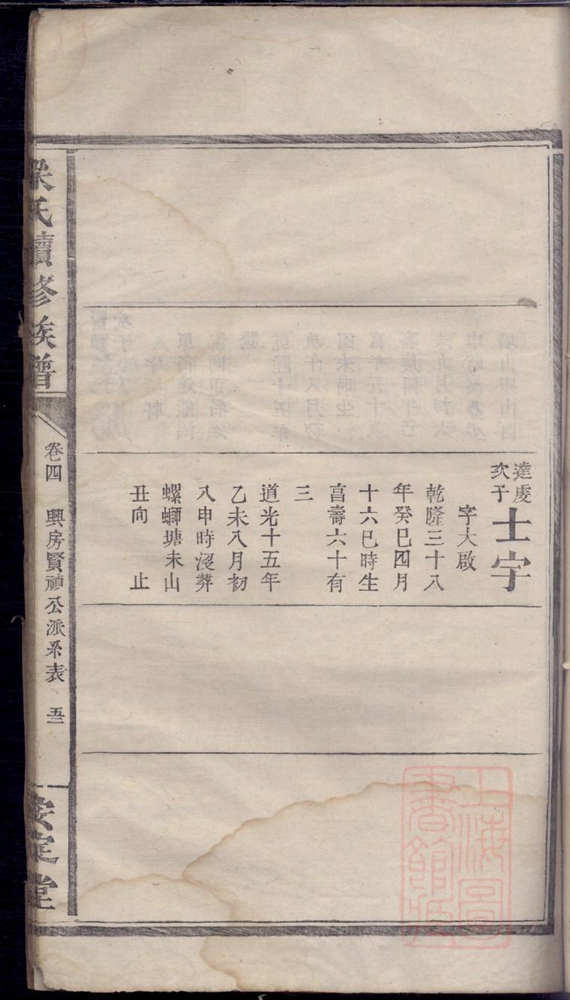 達虔
次子
士字
字大啟
乾隆三十八
年癸巳四月
十六巳時生
享壽六十有
三
道光十五年
乙未八月初
八申時歿葬
螺螄塘未山
丑向 止
梁氏續修族譜
卷四 興房賢禎公派系表
安定堂
上海圖書館藏